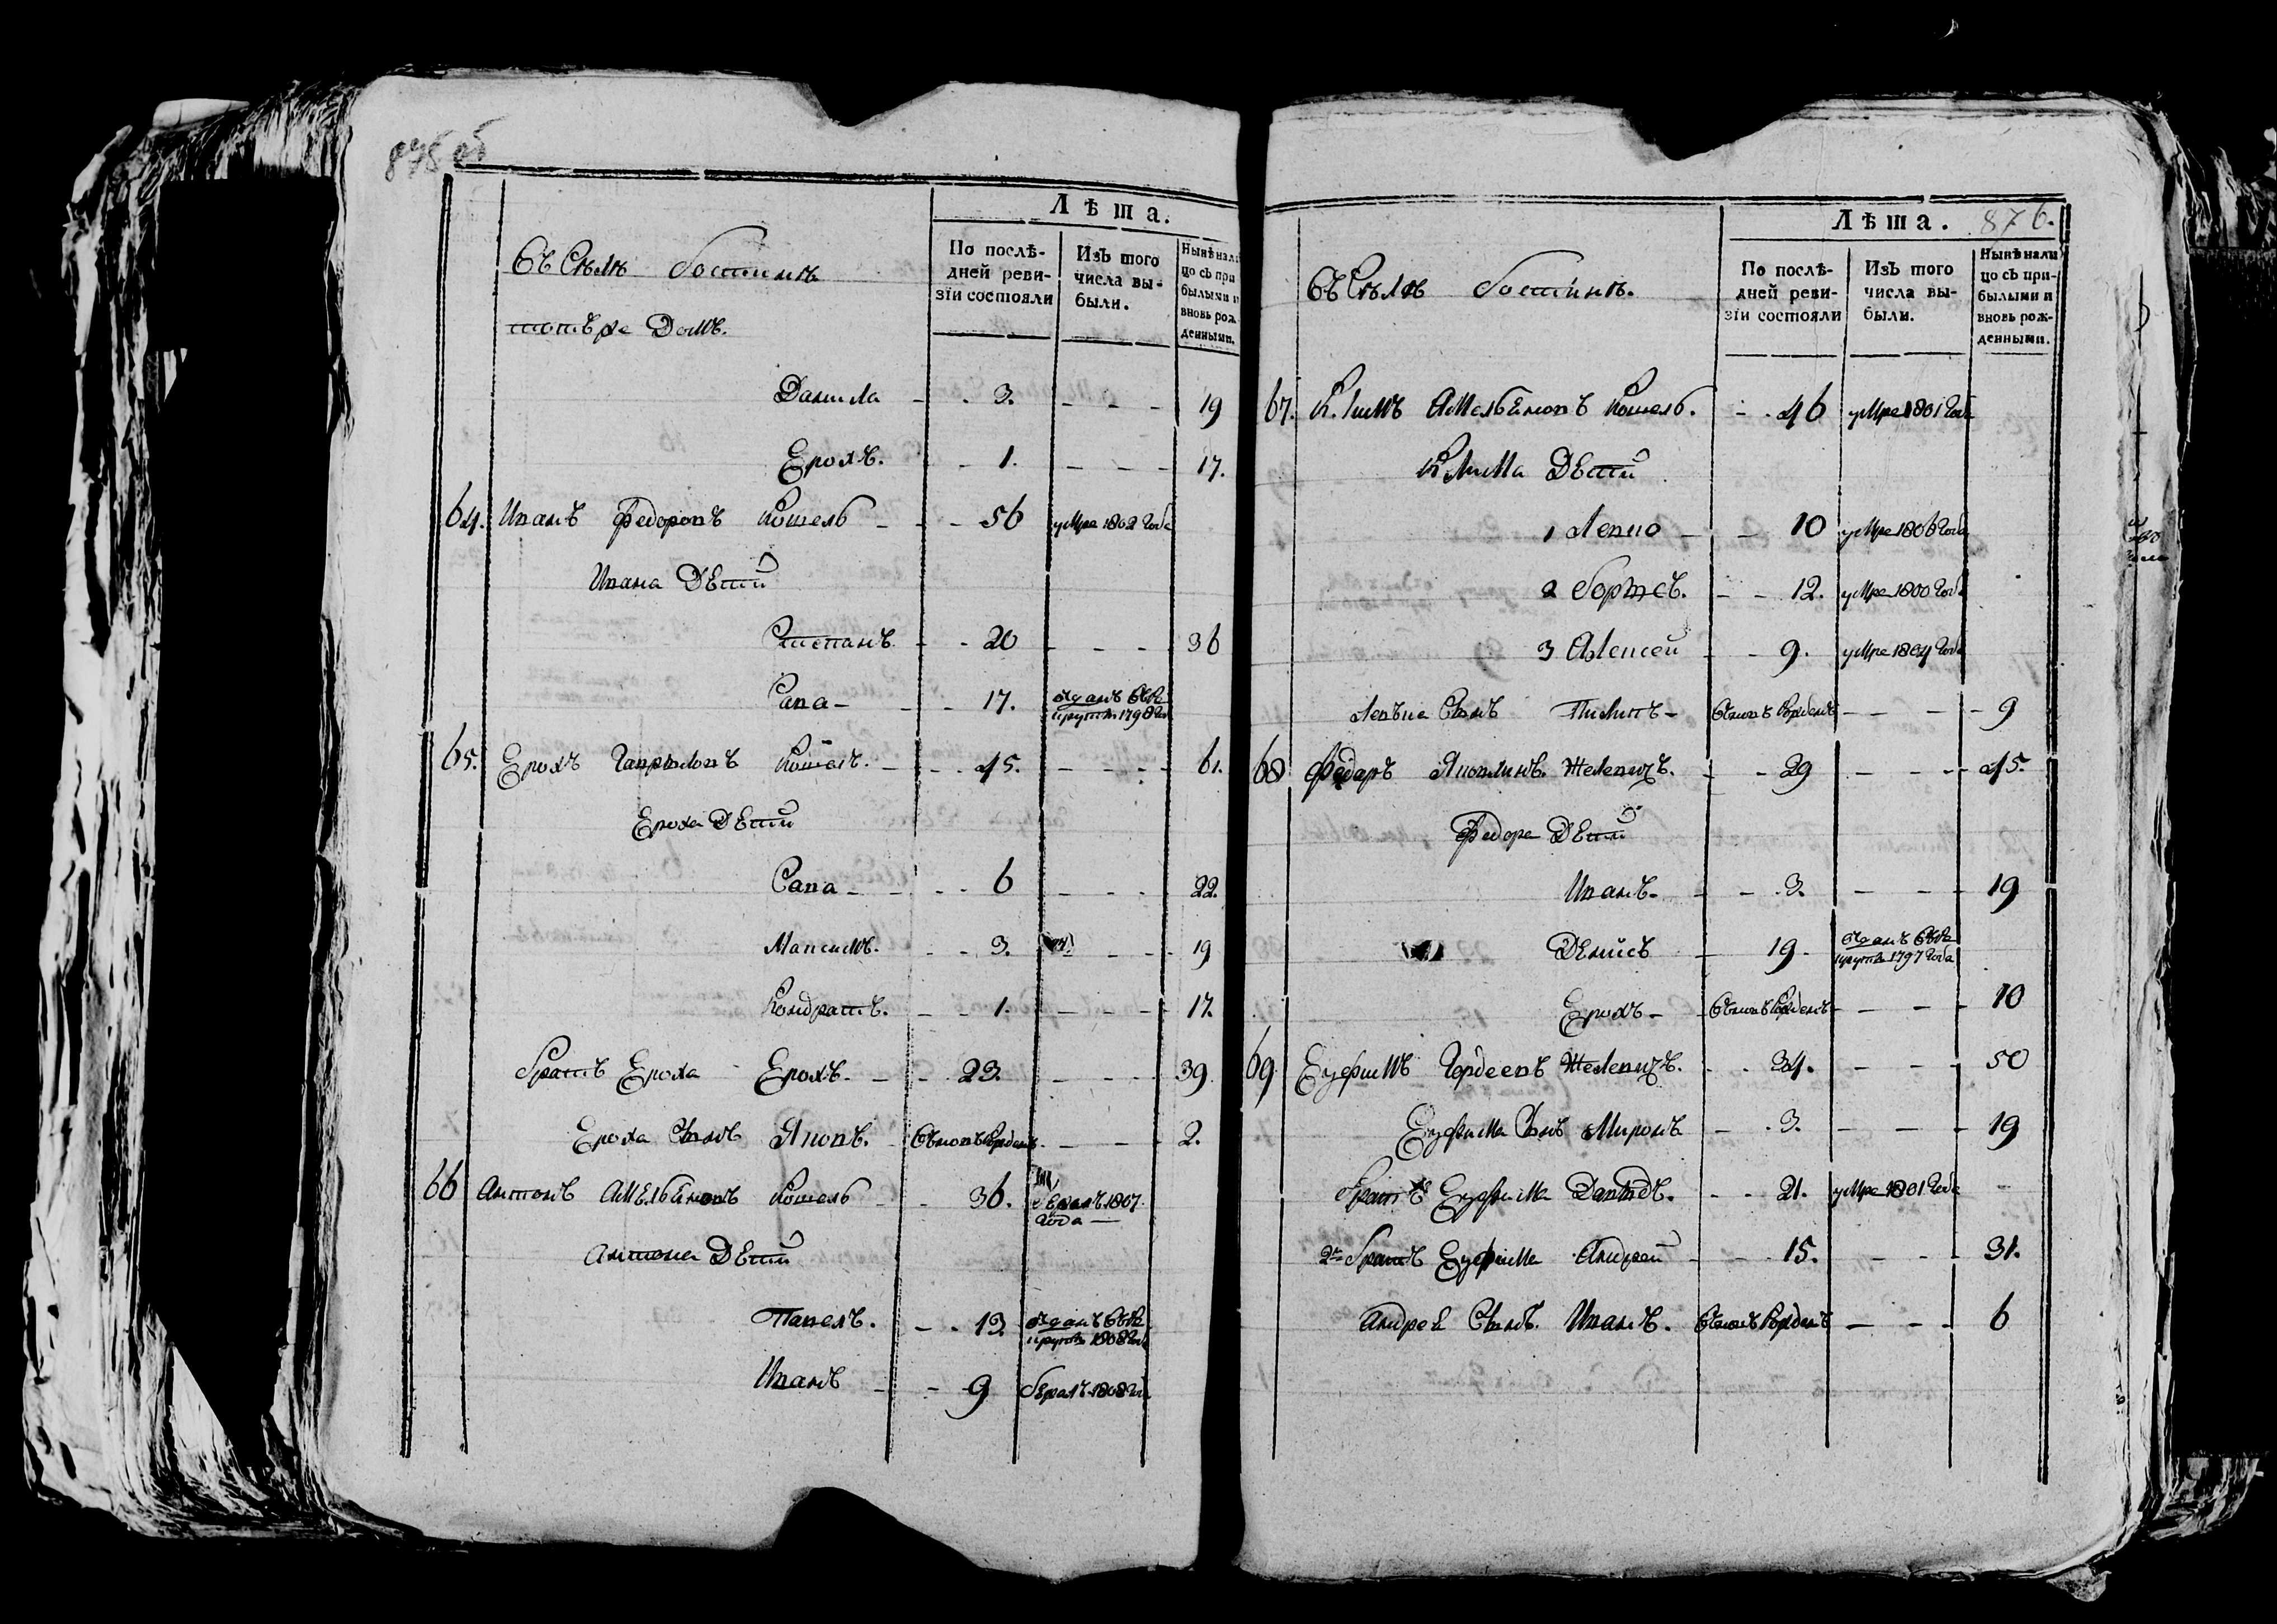 875 об
Лѣта.
Въ Селѣ Гостинѣ
По послѣ-
дней реви-
зіи состояли
Изъ того
числа вы-
были.
Нынѣ нали
цо съ при
былыми и
вновь рож
денными.
Данила - - 3. - - - 19
Ерохъ. - - 1. - - - 17.
64. Иванъ Федоровъ Кошель - - - 56 умре 1802 года
Ивана Дѣти
Степанъ - - 20 - - - 36
Сава - - - 17. отданъ въ рекруты 1798
65. Ерохъ Гавриловъ Кошель. - - - 45. - - - 61.
Ероха Дѣти
Сава - - - 6 - - - 22.
Максимъ. - - 3. - - 19
Кондратъ. - - 1. - - - 17.
Братъ Ероха Ерохъ. - - 23. - - - 39
Ероха Сынъ Яковъ. - вновь рожденъ - - - 2.
66 Антонъ Амельяновъ Кошель - - 36. бежалъ 1807
года
Антона Дѣти
Павелъ. - - 13. отданъ въ рекруты 1808 года
Иванъ - - 9 бежалъ 1808
Лѣта. 876.
Въ Селѣ Гостинѣ.
По послѣ-
дней реви-
зіи состояли
Изъ того
числа вы-
были.
Нынѣ нали
цо съ при-
былыми и
вновь рож-
денными.
67. Климъ Амельяновъ Кошель. - - 46 умре 1801 года
Клима Дѣти
1 Левко - - 10 умре 1806 года
2 Борисъ. - - 12. умре 1800 года
3 Алексей - - 9. умре 1804 года
Левка Сынъ Пилипъ - вновь рожденъ - - - 9
68 Федоръ Яковлевъ. Желензъ. - - 29 - - - 45.
Федора Дѣти
Иванъ - - - 3. - - - 19
Денисъ - 19. отданъ въ рекруты 1797 года
Ерохъ - - вновь рожденъ - - - 10
69 Ефимъ Гордеевъ Желензъ. - - 34. - - - 50
Ефима Сынъ Миронъ - - 3. - - - 19
Братъ Ефима Давидъ. - - 21. умре 1801 года -
2й Братъ Ефима Андрей - - - 15. - - - 31.
Андрея Сынъ. Иванъ. вновь рожденъ - - - 6